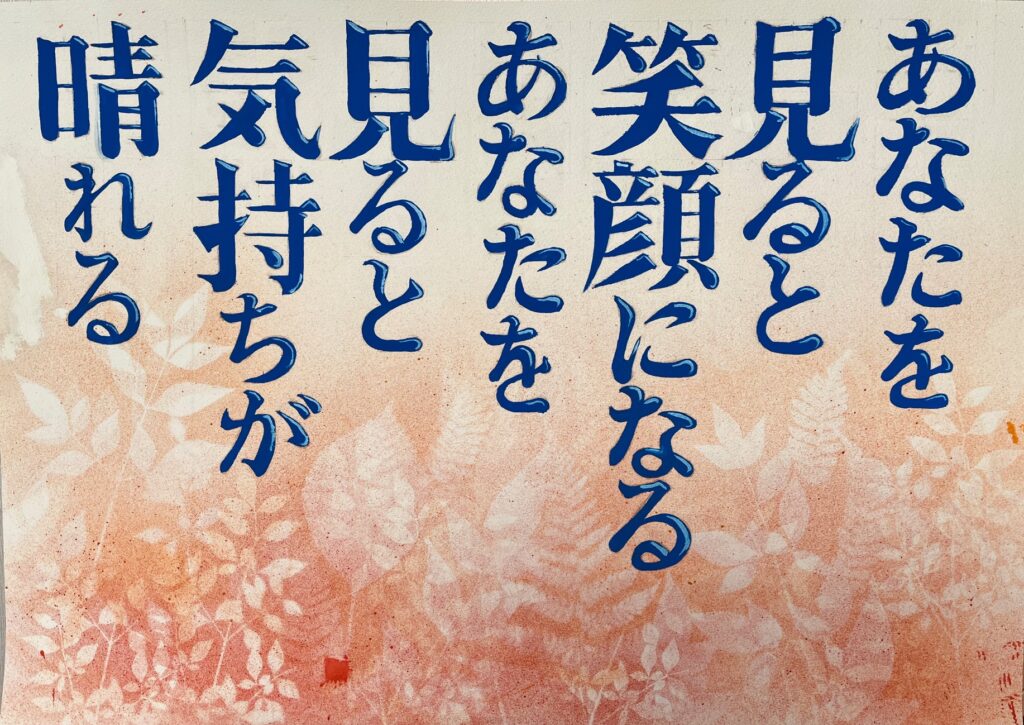 あなたを
見ると
笑顔になる
あなたを
見ると
気持ちが
晴れる